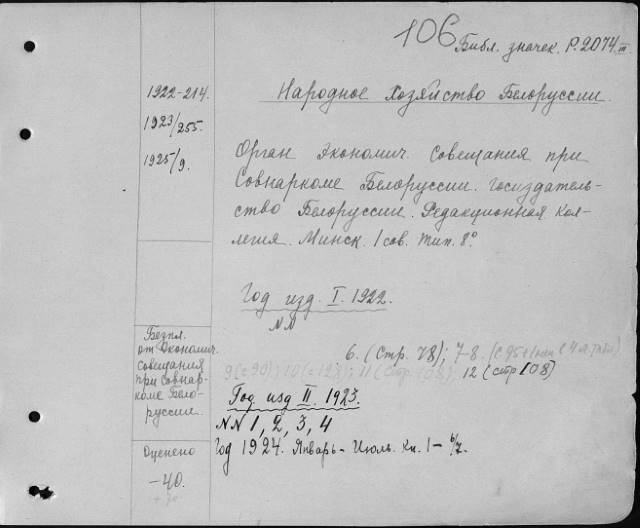 106
Библ. значек. Р.2074 III
1922-214.
1923/255.
1925/9.
Народное Хозяйство Белоруссии.
Орган Экономич. Совещания при
Совнаркоме Белоруссии. Госиздатель-
ство Белоруссии. Редакционная Кол-
легия. Минск. 1 сов. тип. 8°
Год изд. I. 1922.
NN
6. (Стр. 78); 7-8. (С 95+1
9 (с 90); 10 (с 128); 11 (Стр. 108); 12 (стр 108)
Год изд II. 1923.
NN 1, 2, 3, 4
Год 1924. Январь - Июль. Кн. 1 - 6/7.
Безпл.
от Экономич.
совещания
при Совнар-
коме Бело-
руссии.
Оценено
-40.